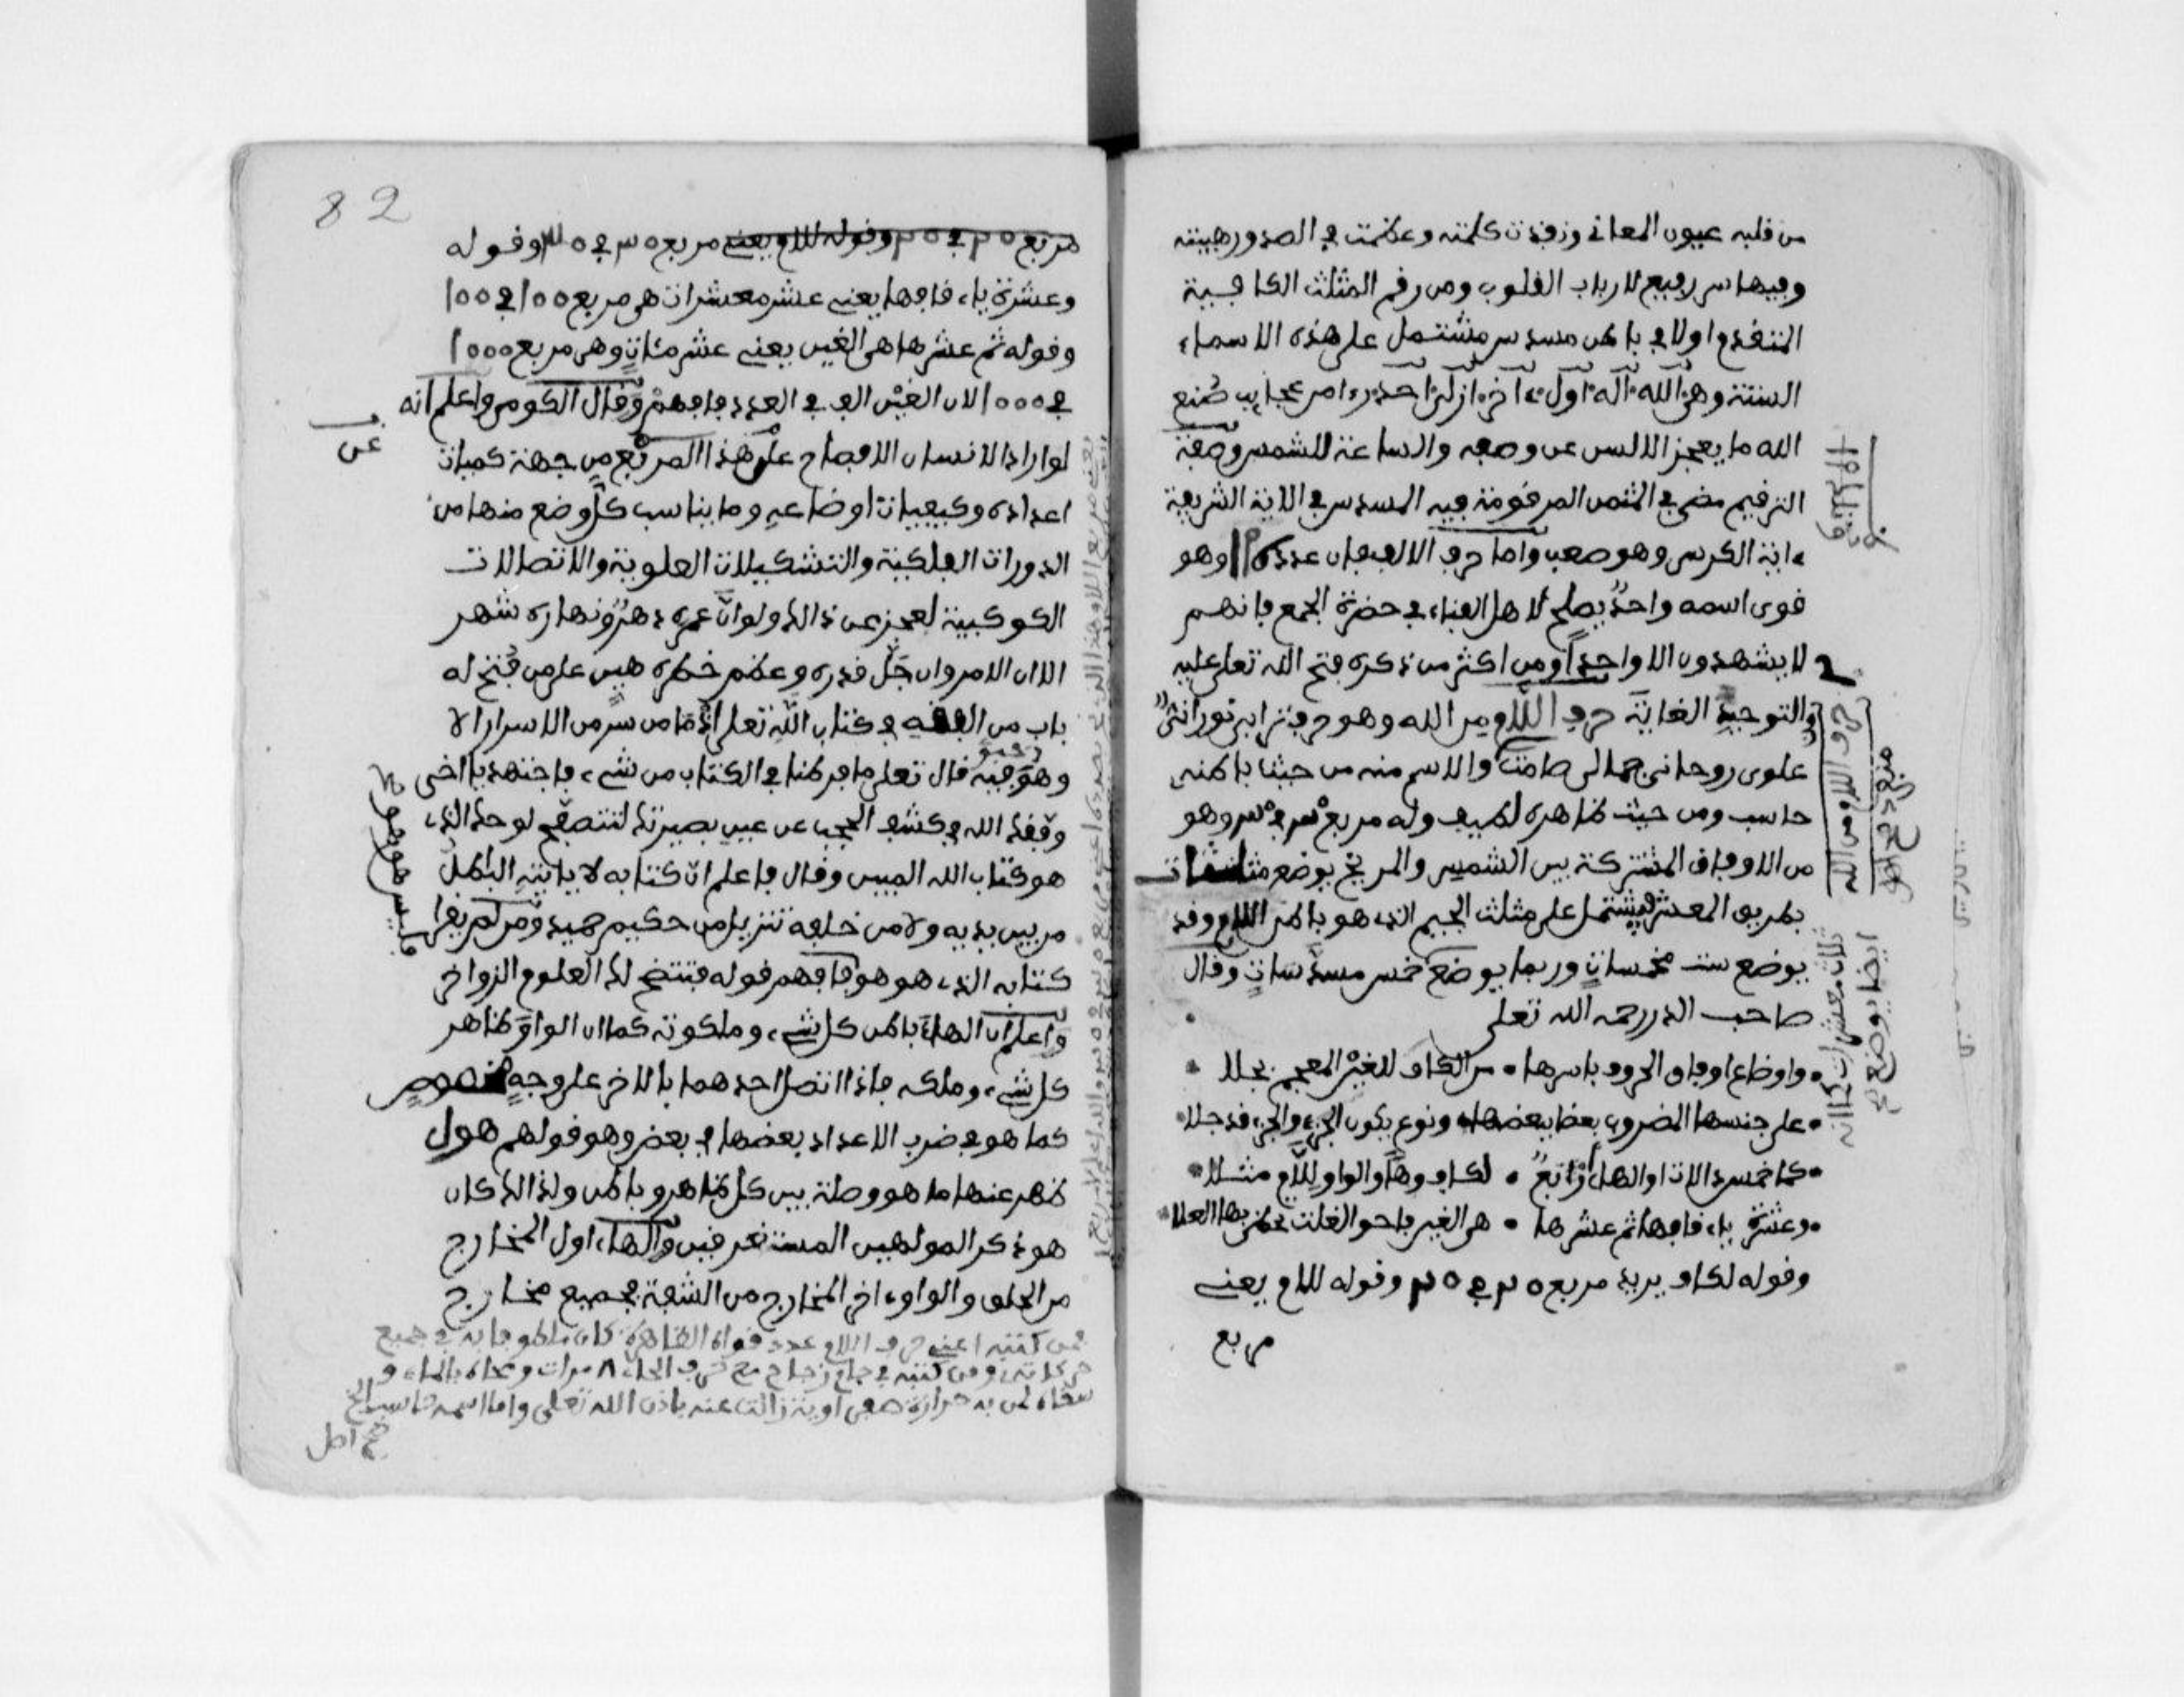 من قلبه عيون المعاني ونفذت كلمته وعظمت في الصدور هيبته
وفيها سر رفيع لارباب القلوب ومن رقم المثلث الكا
المتقدم اولا في باطن مسدس مشتمل على هذه الاسماء
الستة وهي الله اله اول ءاخر ازلي احد رءا من عجايب صنع
الله ما يعجز الالسن عن وصفه والساعة للشمس وصفة
الترقيم مضى في المثمن المرقومة فيه المسدس في الاية الشريفة
ءاية الكرسي وهو صعب واما حرف الالف فان عدده ١١١ وهو
قوى اسمه واحد يصلح لاهل الفناء في حضرة الجمع فانهم
لا يشهدون الا واحدا ومن اكثر من ذكره فتح الله تعلى عليه
والتوحيد الغاية حرف اللام من الله وهو حرف ترابي نوراني
علوى روحاني جمالي صامت والاسم منه من حيث باطنه
حاسب ومن حيث ظاهره لطيف وله مربع ٣٠ في ٣٠ وهو
من الاوفاق المشتركة بين الشمس والمريخ يوضع
بطريق المعشر فيشتمل على مثلث الجيم الذي هو باطن اللام وقد
يوضع ست مخمسات وربما يوضع خمس مسدسات وقال
صاحب الدر رحمه الله تعلى
واوضاع اوفاق الحروف باسرها • من الكاف للغين المعجم
على جنسها المضروب بعضا ببعضها • ونوع يكون الجزء والجزء قد جلا
كما خمس دالات او الهاء رابع • لكاف وهاء والواو للام مثلا
وعشرة ياء قافها ثم عشرها • هي الغين فاحو الغلت تحظى بها العلا
وقوله لكاف يريد مربع ٢٠ في ٢٠ وقوله للام يعني
مربع
حرف اللام من الله
82
مربع ٢٠ في ٢٠ وقوله للام يعني مربع ٣٠ في ٣٠ وقوله
وعشرة ياء قافها يعني عشر معشرات هي مربع ١٠٠ في ١٠٠
وقوله ثم عشرها هي الغين يعني عشر مئات وهي مربع ١٠٠٠
في ١٠٠٠ لان الغين الف في العدد فافهم وقال الكومي واعلم انه
لو اراد الانسان الافصاح على هذا المربع من جهة كميات
عن
اعداده وكيفيات اوضاعه وما يناسب كل وضع منها من
الدورات الفلكية والتشكيلات العلوية والاتصالات
الكوكبية لعجز عن ذالك ولو ان عمره دهر ونهاره شهر
الا ان الامر وان جل قدره وعظم خطره هين على من فتح له
باب من الفقه في كتاب الله تعلى اذ ما من سر من الاسرار الا
وهو فيه قال تعلى ما فرطنا في الكتاب من شيء فاجتهد يا اخي
وفقك الله في كشف الحجب عن عين بصيرتك لتتصفح لوحك الذي
هو كتاب الله المبين وقال فاعلم ان كتابه لا ياتيه الباطل
من بين يديه ولا من خلفه تنزيل من حكيم حميد ومن لم يقرا
كتابه الذي هو هو فافهم قوله فتتضح لك العلوم الزواخر
واعلم ان الهاء باطن كل شيء وملكوته كما ان الواو ظاهر
كل شيء وملكه فاذا اتصل احدهما بالاخر على وجه مخصوص
كما هو في ضرب الاعداد بعضها في بعض وهو قولهم هول
ظهر عنها ما هو وصلة بين كل ظاهر وباطن ولذالك كان
هو ذكر المولهين المستغرقين والهاء اول المخارج
من الحلق والواو ءاخر المخارج من الشفة فجميع مخارج
فمن كتبه اعني حرف اللام عدد قواه الظاهرة كان ملطوفا به في جميع
حركاته ومن كتبه في جام زجاج مع حرف الحاء ٨ مرات ومحاه بالماء و
سقاه لمن به حرارة زالت عنه باذن الله تعلى واما اسمه حاسب الخ
صح اصل